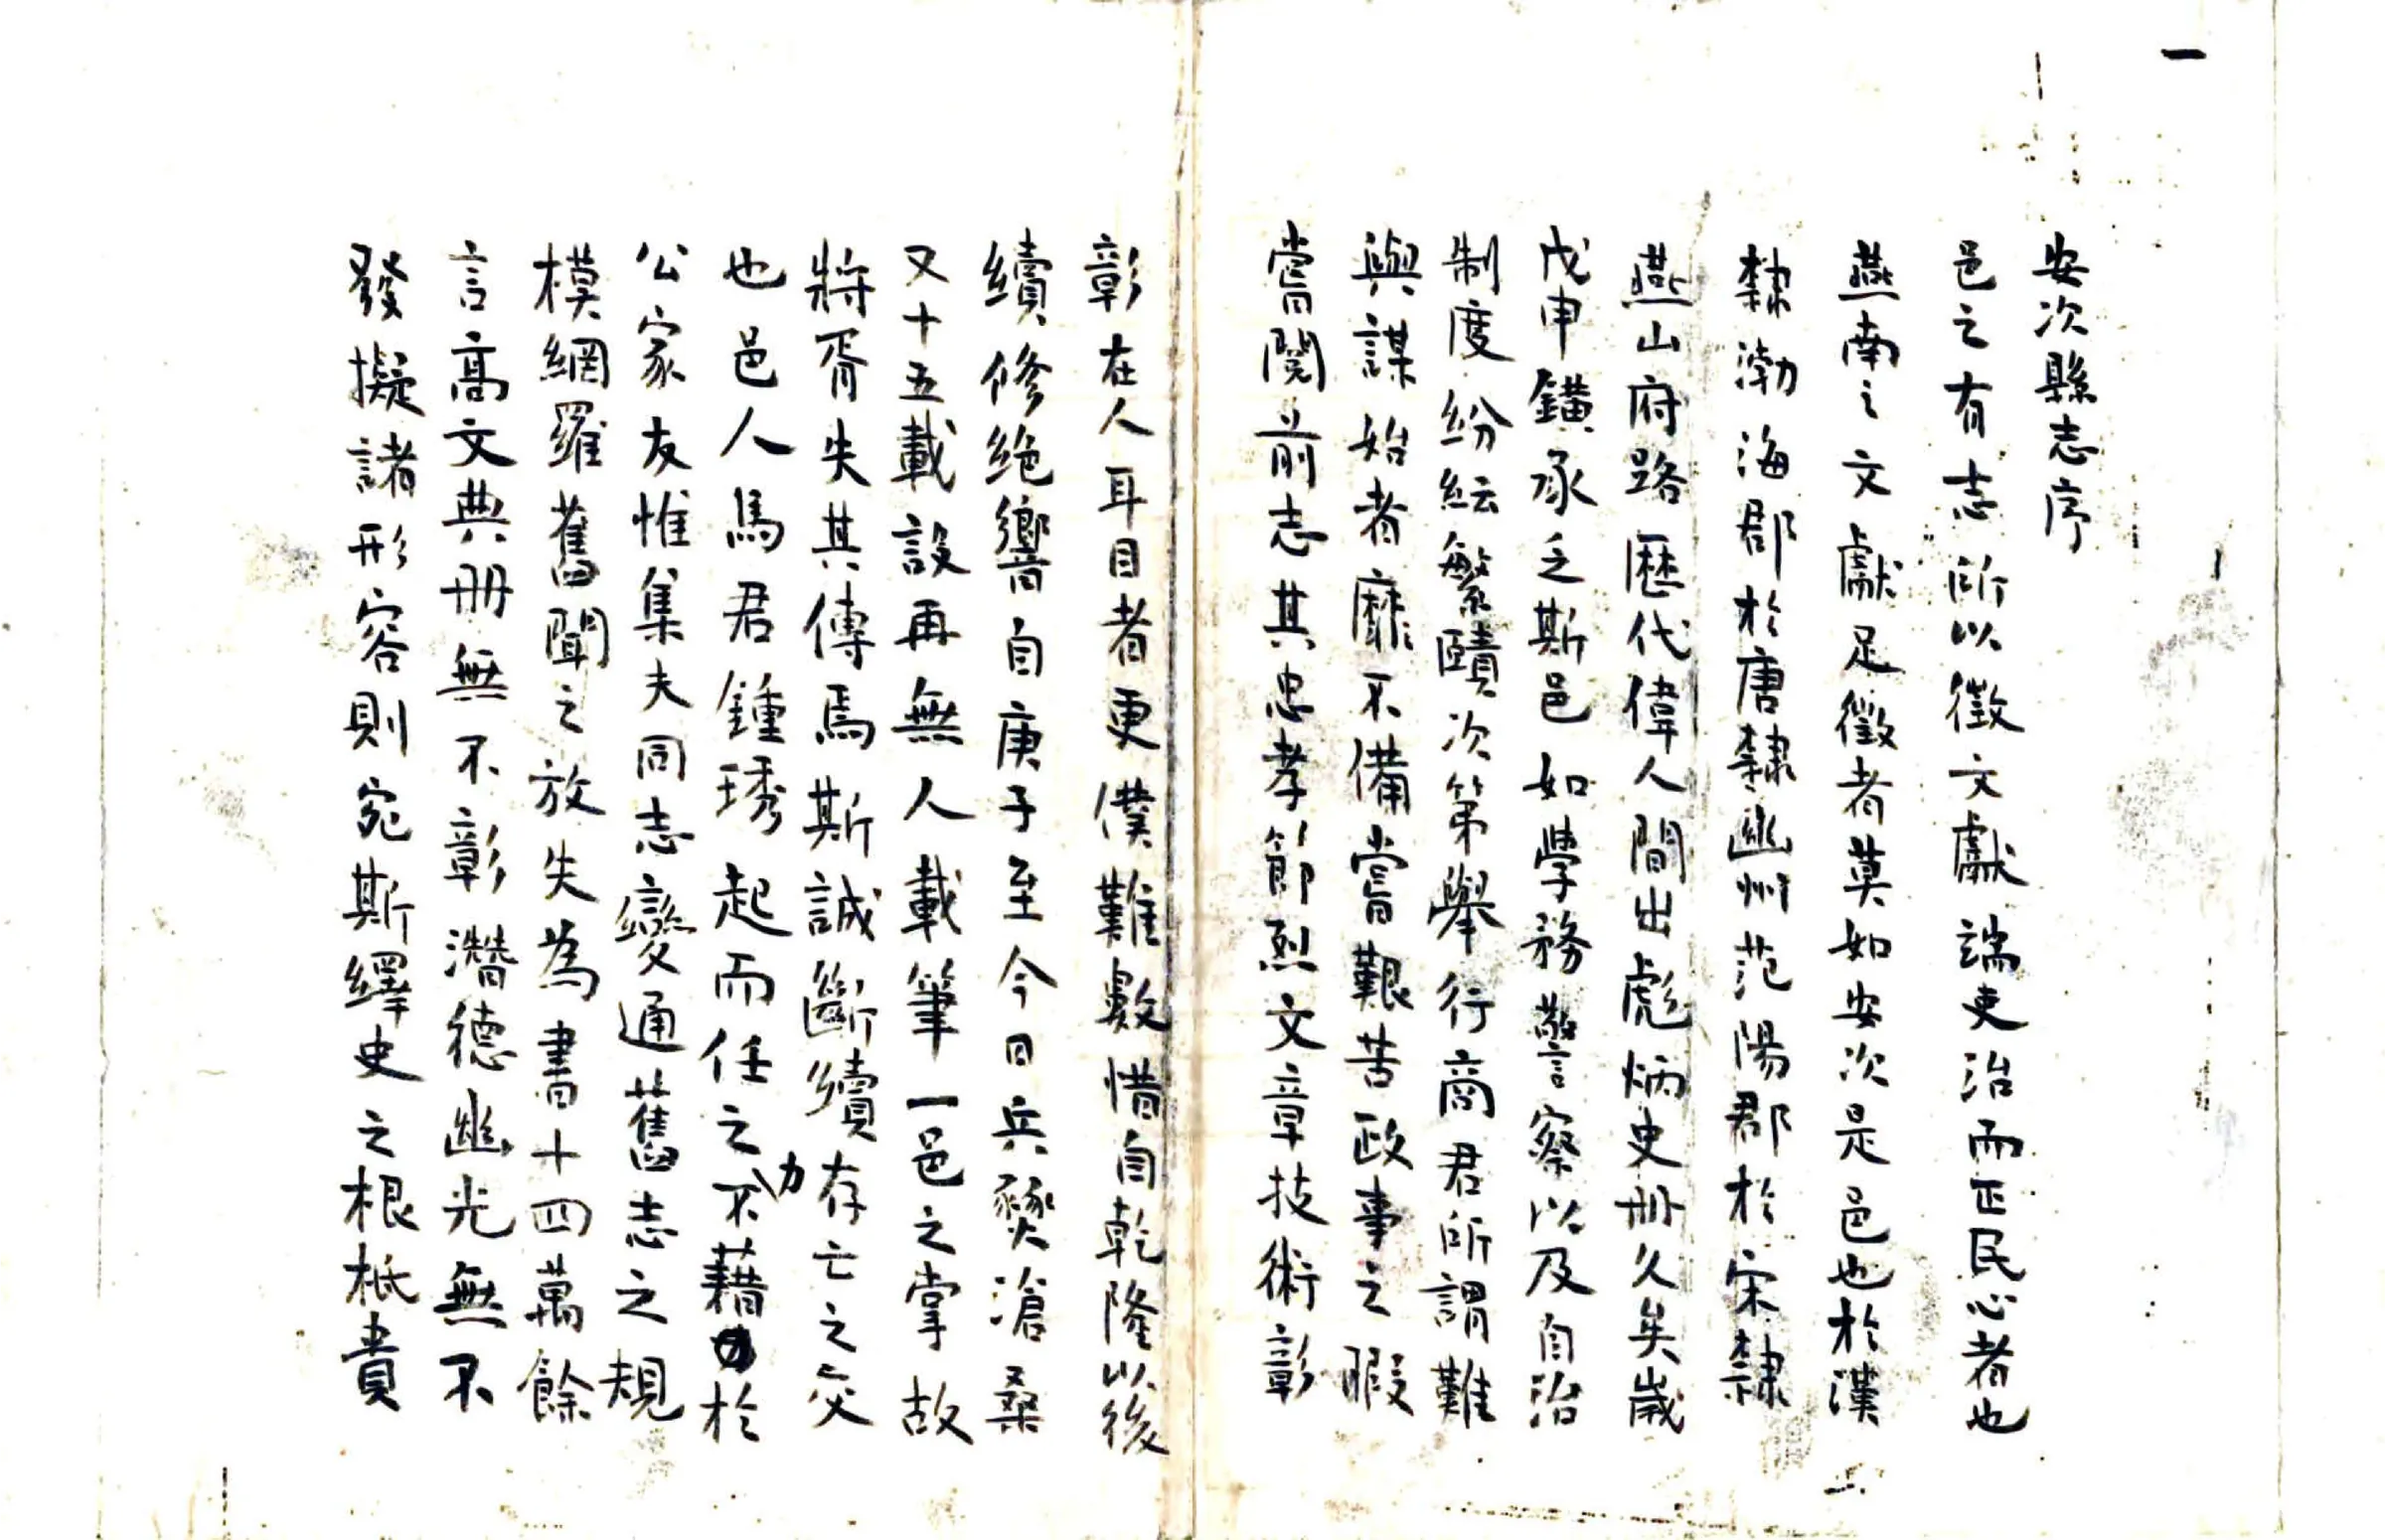 一
安次縣志序
邑之有志所以徵文獻端吏治而正民心者也
燕南之文獻足徵者莫如安次是邑也於漢
隸渤海郡於唐隸幽州范陽郡於宋隸
燕山府路歷代偉人間出彪炳史册久矣歲
戊申鐄承乏斯邑如學務警察以及自治
制度紛紜繁賾次第舉行商君所謂難
與謀始者靡不備嘗艱苦政事之暇
嘗閱前志其忠孝節烈文章技術彰
彰在人耳目者更僕難數惜自乾隆以後
續修絶響自庚子至今日兵燹滄桑
又十五載設再無人載筆一邑之掌故
將胥失其傳焉斯誠斷續存亡之交
也邑人馬君鍾琇起而任之不藉力於
公家友惟集夫同志變通舊志之規
模網羅舊聞之放失為書十四萬餘
言高文典册無不彰潛德幽光無不
發擬諸形容則宛斯繹史之根柢貴